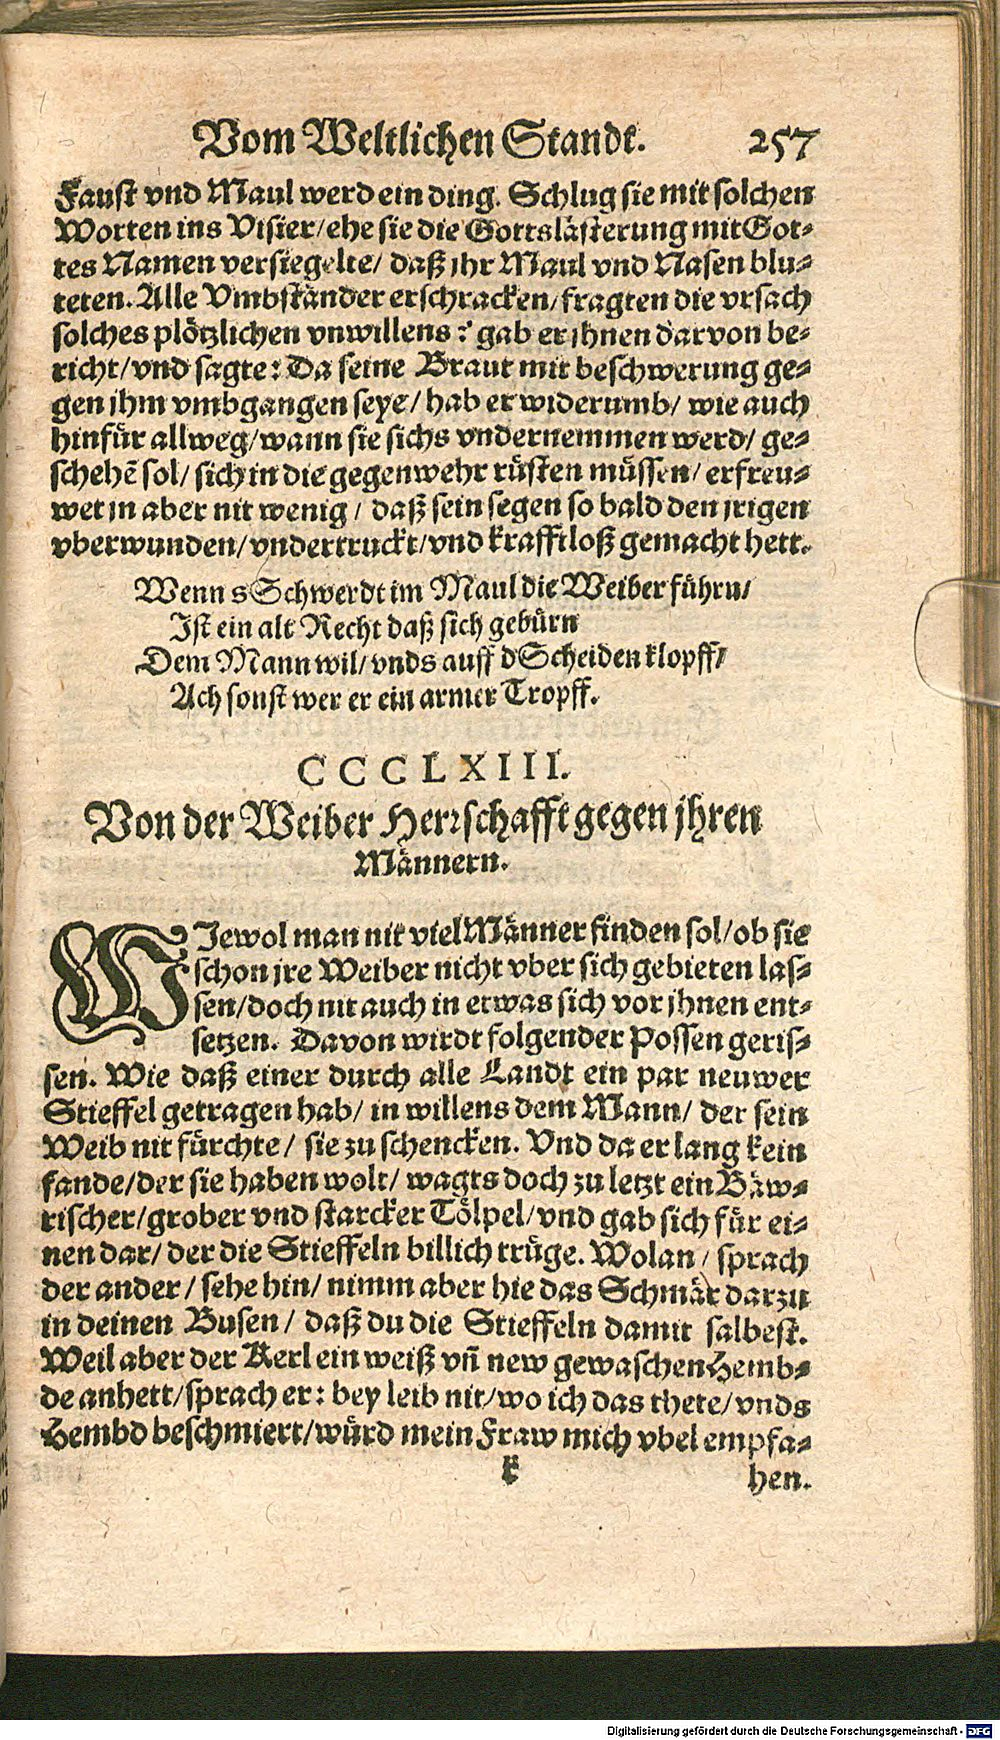 Vom Weltlichen Standt. 257
Faust vnd Maul werd ein ding. Schlug sie mit solchen
Worten ins Visier/ehe sie die Gottslästerung mit Got-
tes Namen versiegelte/ daß jhr Maul vnd Nasen blu-
teten. Alle Vmbständer erschracken/fragten die vrsach
solches plötzlichen vnwillens: gab er jhnen darvon be-
richt/vnd sagte: Da seine Braut mit beschwerung ge-
gen jhm vmbgangen seye/hab er widerumb/ wie auch
hinfür allweg/wann sie sichs vndernemmen werd/ ge-
schehē sol/ sich in die gegenwehr rüsten müssen/ erfreu-
wet jn aber nit wenig/ daß sein segen so bald den jrigen
vberwunden/vndertruckt/vnd krafftloß gemacht hett.
Wenn s Schwerdt im Maul die Weiber führn/
Ist ein alt Recht daß sich gebürn
Dem Mann wil/vnds auff d Scheiden klopff/
Ach sonst wer er ein armer Tropff.
CCCLXIII.
Von der Weiber Herrschafft gegen jhren
Männern.
WIewol man nit viel Männer finden sol/ob sie
schon jre Weiber nicht vber sich gebieten las-
sen/doch nit auch in etwas sich vor jhnen ent-
setzen. Davon wirdt folgender Possen geris-
sen. Wie daß einer durch alle Landt ein par neuwer
Stieffel getragen hab/ in willens dem Mann/ der sein
Weib nit fürchte/ sie zu schencken. Vnd da er lang kein
fande/der sie haben wolt/ wagts doch zu letzt ein Bäw-
rischer/grober vnd starcker Tölpel/vnd gab sich für ei-
nen dar/ der die Stieffeln billich trüge. Wolan/ sprach
der ander/ sehe hin/ nimm aber hie das Schmär darzu
in deinen Busen/ daß du die Stieffeln damit salbest.
Weil aber der Kerl ein weiß vn̄ new gewaschen Hemb-
de anhett/sprach er: bey leib nit/wo ich das thete/vnds
Hembd beschmiert/würd mein Fraw mich vbel empfa-
r hen.
Digitalisierung gefördert durch die Deutsche Forschungsgemeinschaft - DFG